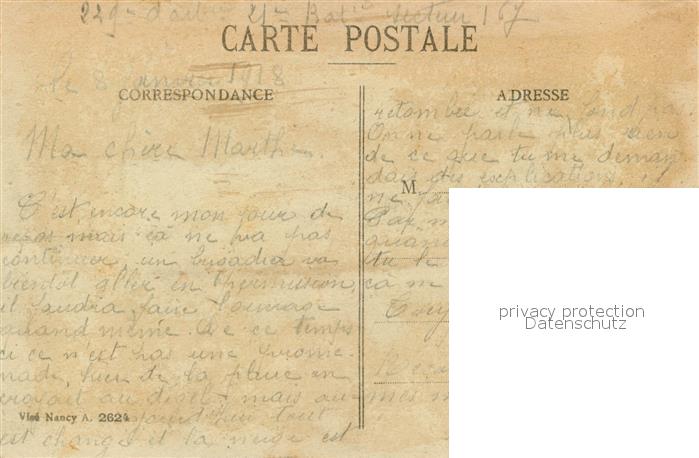 229e d'art 21e Batie Secteur 167
CARTE POSTALE
le 8 janvier 1918
CORRESPONDANCE
Ma chère Marthe.
C'est encore mon jour de
repos mais ça ne va pas
continuer un brigadier va
bientôt aller en permission
il faudra faire l'ouvrage
quand même. De ce temps
ci ce n'est pas une prome-
nade, hier de la pluie on
croyait au dégel mais au-
jourd'hui tout
est changé et la neige est
ADRESSE
retombée et ne fond pas.
On ne parle plus rien
de ce que tu me deman
dais des explications, il
M.
ne
Par
quand
tu le
ça ne
mes
Visé Nancy A. 2624
privacy protection
Datenschutz